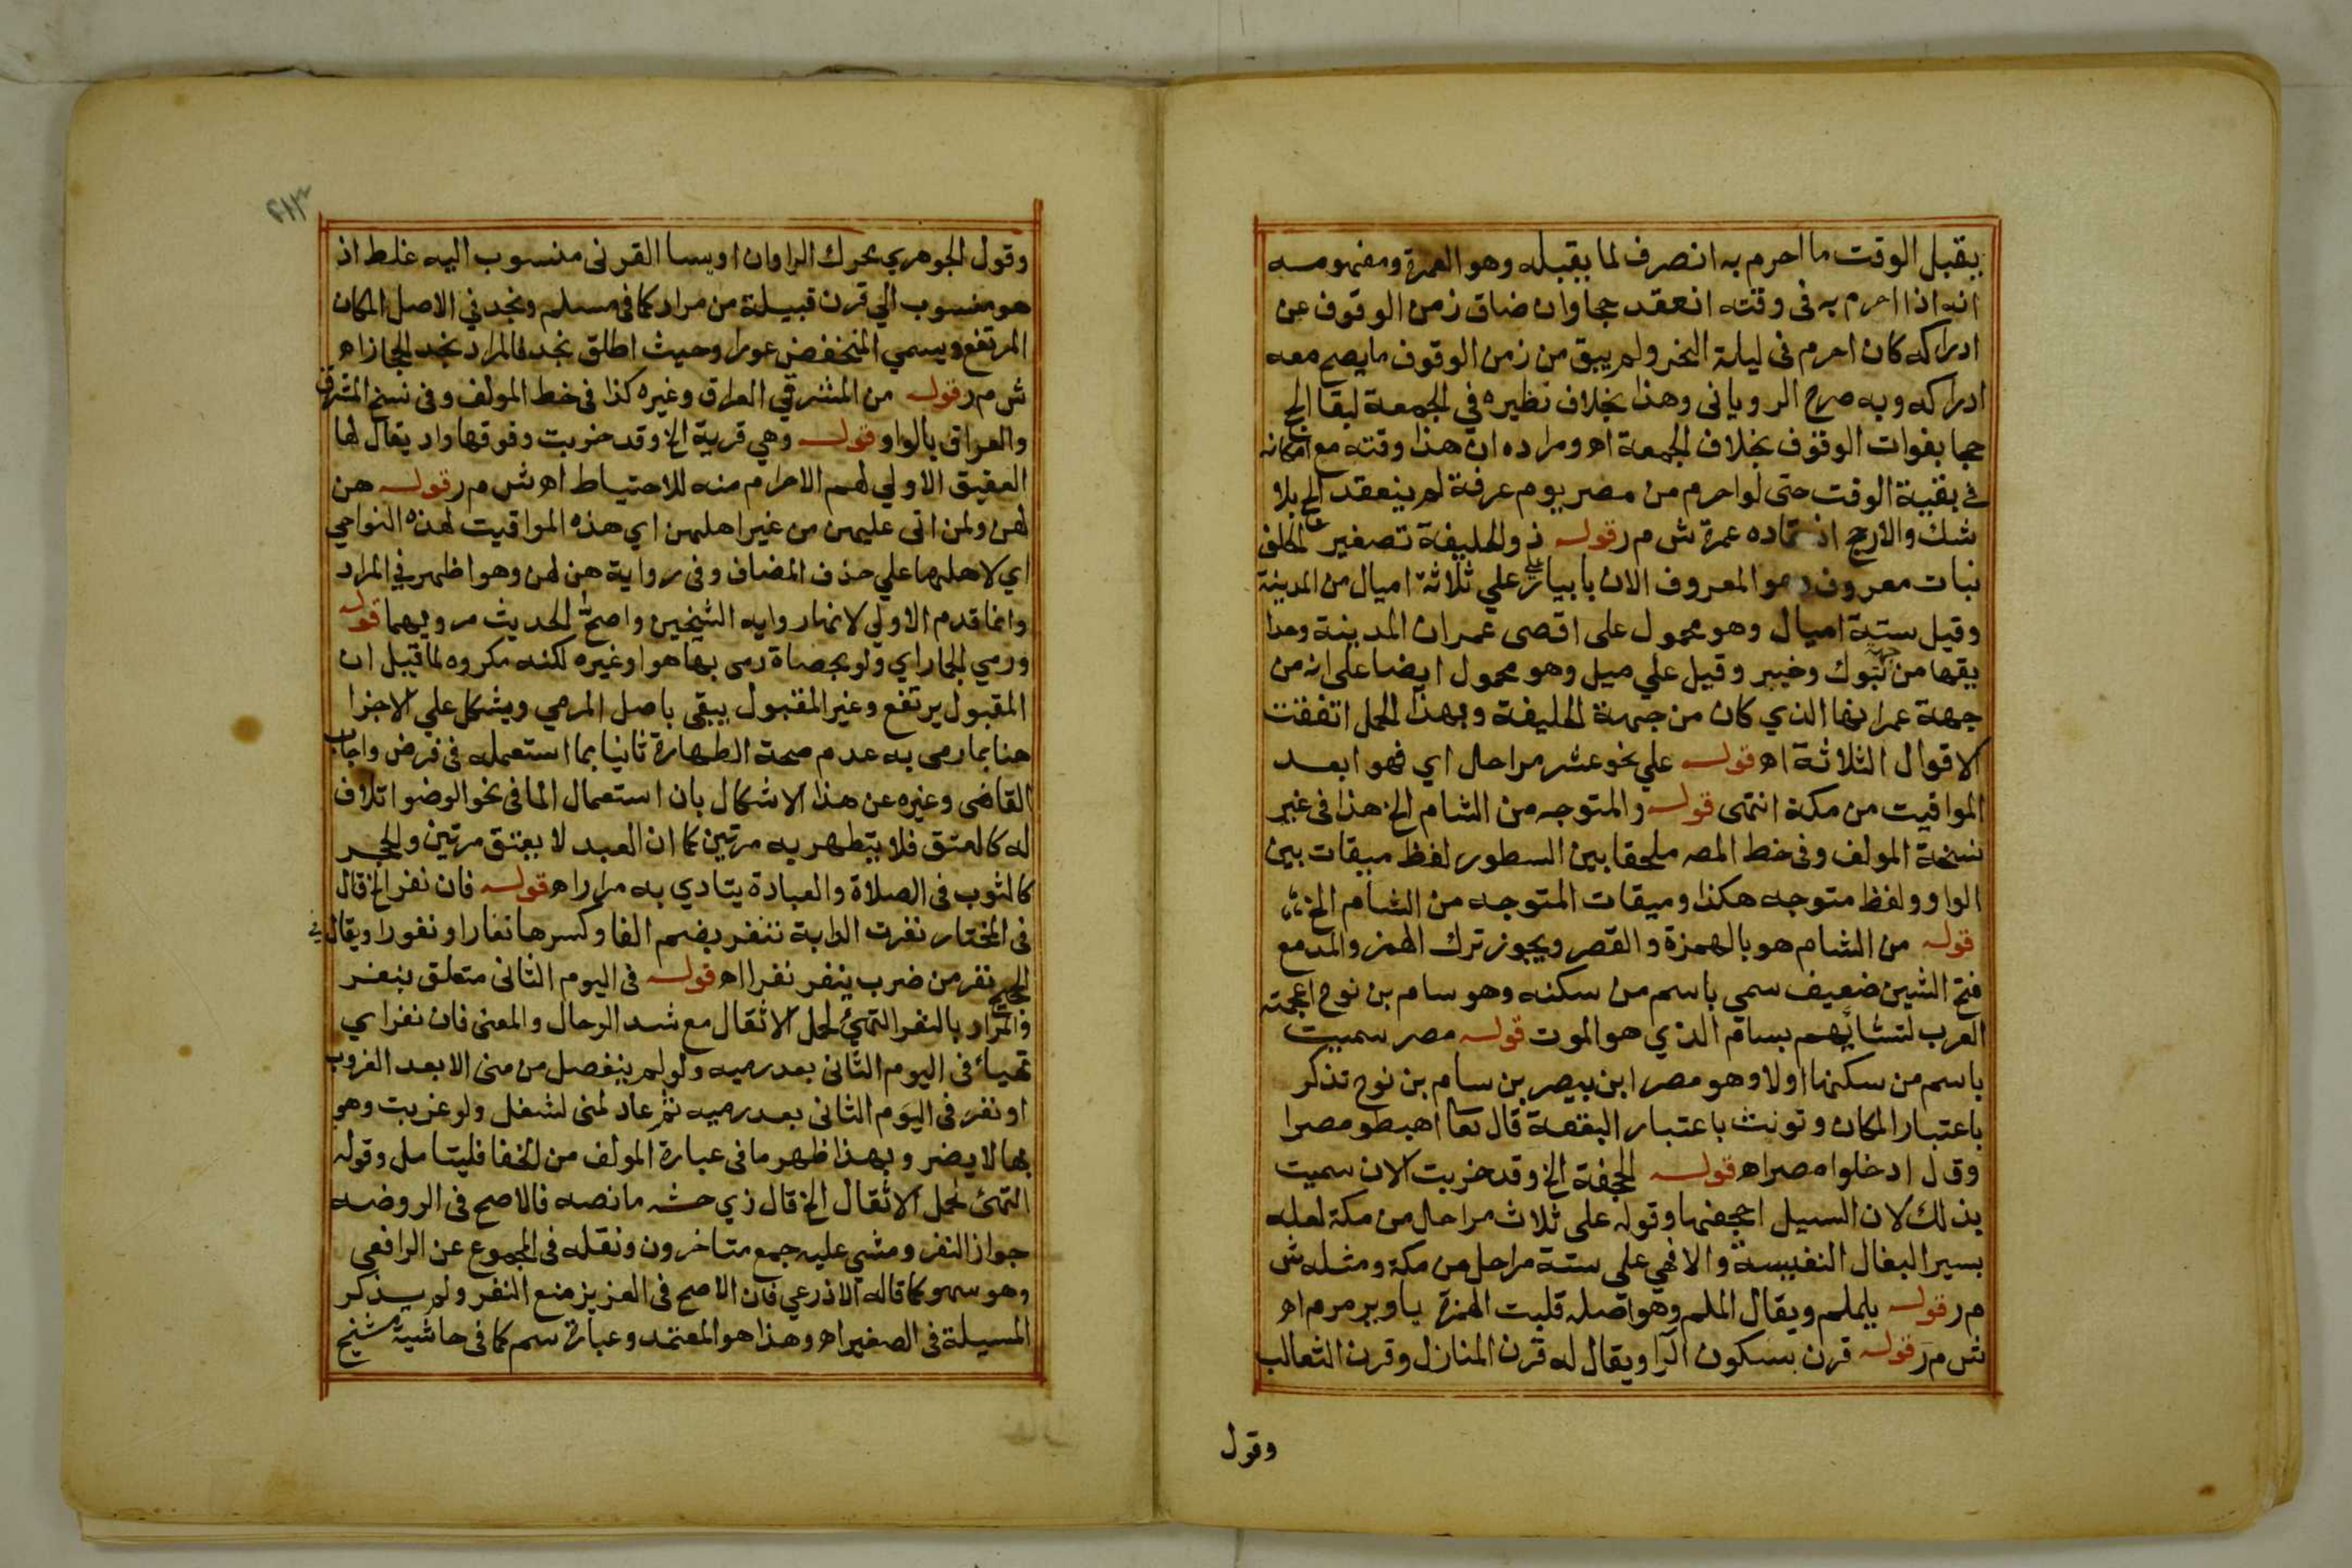 يقبل الوقت ما احرم به انصرف لما يقبله وهو العمرة ومفهومه
انه اذا احرم به فى وقته انعقد حجا وان ضاق زمن الوقوف عن
ادراكه كان احرم فى ليلة النحر ولم يبق من زمن الوقوف ما يصح معه
ادراكه وبه صرح الرويانى وهذا بخلاف نظيره في الجمعة لبقا الحج
حجا بفوات الوقوف بخلاف الجمعة اه ومراده ان هذا وقته مع امكانه
في بقية الوقت حتى لو احرم من مصر يوم عرفة لم ينعقد الحج بلا
شك والارجح انعقاده عمرة ش م ر قوله ذو الحليفة تصغير الحلفة
نبات معروف وهو المعروف الان بابيار على علي ثلاثة اميال من المدينة
وقيل ستة اميال وهو محمول على اقصى عمران المدينة وحدا
يقها من جهة تبوك وخيبر وقيل علي ميل وهو محمول ايضا على انه من
جهة عمرانها الذي كان من جهة الحليفة وبهذا المحمل اتفقت
الاقوال الثلاثة اه قوله علي نحو عشر مراحل اي فهو ابعد
المواقيت من مكة انتهى قوله والمتوجه من الشام الخ هذا فى غير
نسخة المولف وفى خط المصه ملحقا بين السطور لفظ ميقات بين
الواو ولفظ متوجه هكذا وميقات المتوجه من الشام الخ
قوله من الشام هو بالهمزة والقصر ويجوز ترك الهمز والمد مع
فتح الشين ضعيف سمى باسم من سكنه وهو سام بن نوح اعجمته
العرب لتشابههم بسام الذي هو الموت قوله مصر سميت
باسم من سكنها اولا وهو مصر ابن بيصر بن سام بن نوح تذكر
باعتبار المكان وتونث باعتبار البقعة قال تعا اهبطو مصرا
وقال ادخلوا مصر اه قوله الجحفة الخ وقد خربت الان سميت
بذلك لان السيل اجحفها وقوله على ثلاث مراحل من مكة لعله
بسير البغال النفيسة والا فهي على ستة مراحل من مكة ومثله ش
م ر قوله يلملم ويقال الملم وهو اصله قلبت الهمزة يا ويرمرم اه
ش م ر قوله قرن بسكون الرا ويقال له قرن المنازل وقرن الثعالب
وقول
٢١٣
وقول الجوهري بحرك الرا وان اويسا القرنى منسوب اليه غلط اذ
هو منسوب الي قرن قبيلة من مراد كما فى مسلم ونجد في الاصل المكان
المرتفع ويسمي المنخفض غورا وحيث اطلق نجد فالمراد نجد الحجاز اه
ش م ر قوله من المشرقي العراق وغيره كذا فى خط المولف وفى نسخ المشرق
والعراق بالواو قوله وهي قرية الخ وقد خربت وفوقها واد يقال لها
العقيق الاولي لهم الاحرام منه للاحتياط اه ش م ر قوله هن
لهن ولمن اتى عليهن من غير اهلهن اي هذه المواقيت لهذه النواحي
اي لاهلها علي حذف المضاف وفى رواية هن لهن وهو اظهر في المراد
وانما قدم الاولي لانها رواية الشيخين واصح الحديث مرويهما قوله
ورمي الجمار اي ولو بحصاة رمى بها هو او غيره لكنه مكروه لما قيل ان
المقبول يرتفع وغير المقبول يبقى باصل المرمي ويشكل علي الاجزا
هنا بما رمى به عدم صحة الطهارة ثانيا بما استعمله فى فرض واجاب
القاضى وغيره عن هذا الاشكال بان استعمال الما فى نحو الوضو اتلاف
له كالعتق فلا يتطهر به مرتين كما ان العبد لا يعتق مرتين والحجر
كالثوب فى الصلاة والعبادة يتادي به مرارا اه قوله فان نفر الخ قال
فى المختار نفرت الدابة تنفر بضم الفا وكسرها نفارا ونفورا ويقال في
الحج نفر من ضرب ينفر نفرا اه قوله فى اليوم الثانى متعلق بنفر
فالمراد بالنفر التهيئ لحمل الاثقال مع شد الرحال والمعنى فان نفر اي
تهيأ فى اليوم الثانى بعد رميه ولو لم ينفصل من منى الا بعد الغروب
او نفر فى اليوم الثانى بعد رميه ثم عاد لمنى لشغل ولو غربت وهو
بها لا يضر وبهذا ظهر ما فى عبارة المولف من الخفا فليتامل وقوله
التهئ لحمل الاثقال الخ قال زي حشه ما نصه فالاصح فى الروضه
جواز النفر ومشي عليه جمع متاخرون ونقله فى المجموع عن الرافعى
وهو سهو كما قاله الاذرعي فان الاصح فى العزيز منع النفر ولم يذكر
المسيلة فى الصغير اه وهذا هو المعتمد وعبارة سم كما فى حاشية شيخ